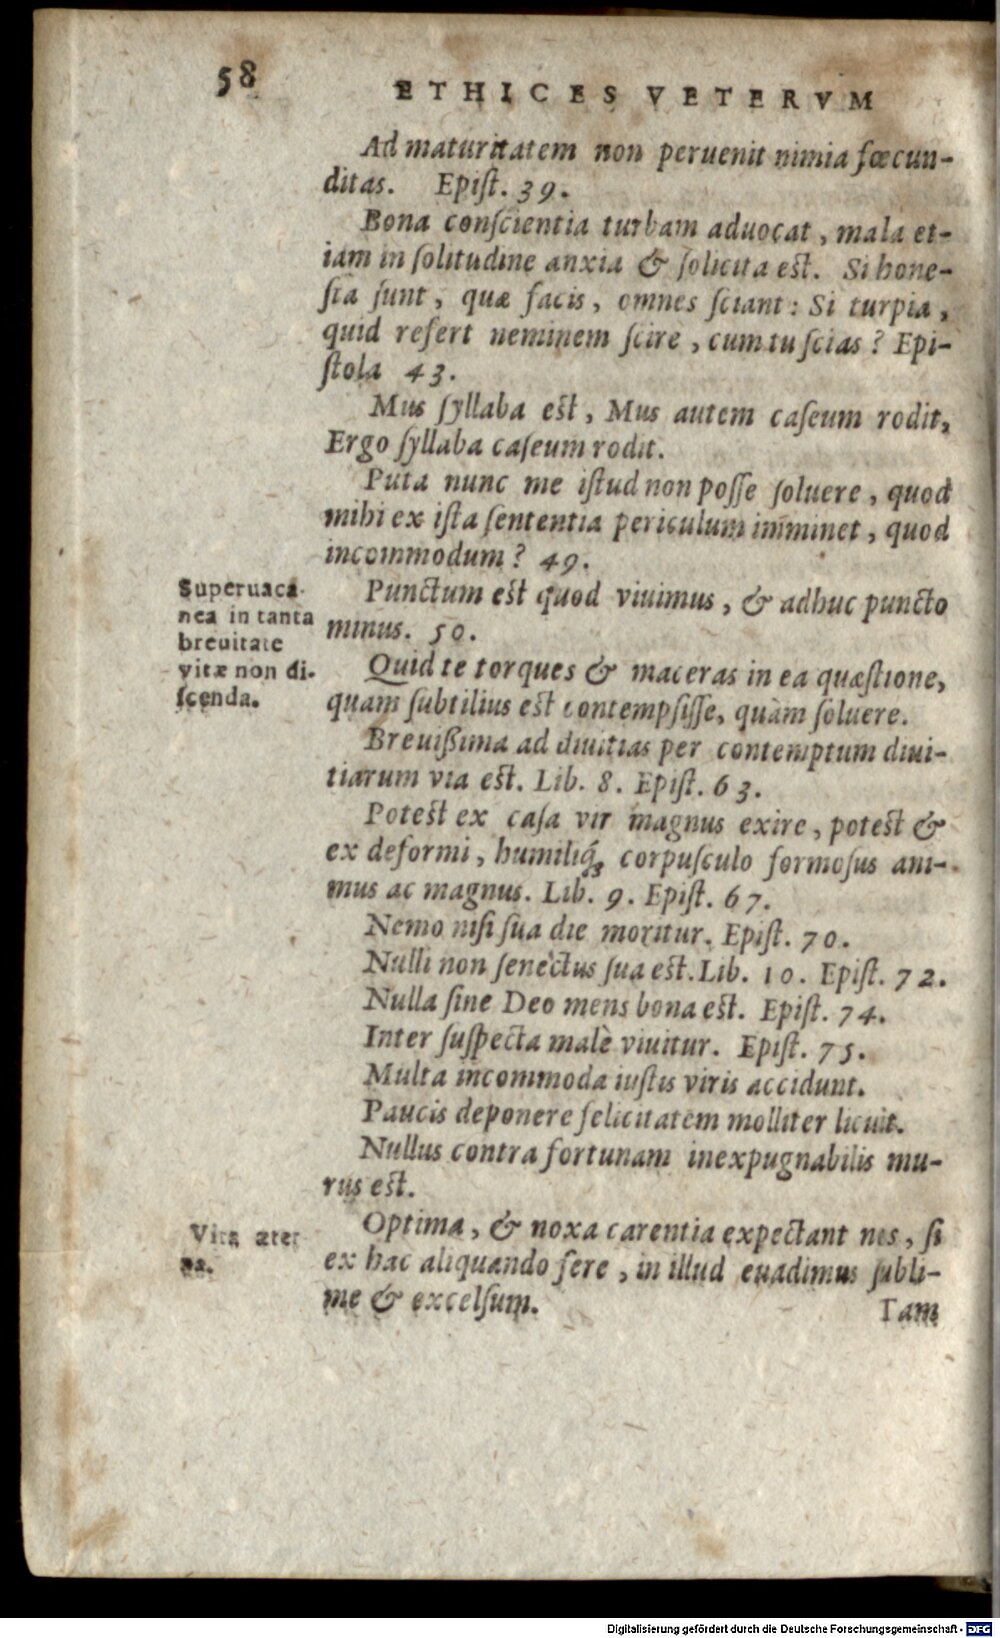 58
ETHICES VETERVM
Ad maturitatem non peruenit nimia fœcun-
ditas. Epiſt. 39.
Bona conſcientia turbam aduocat, mala et-
iam in ſolitudine anxia & ſolicita eſt. Si hone-
ſta ſunt, quæ facis, omnes ſciant: Si turpia,
quid refert neminem ſcire, cum tu ſcias? Epi-
ſtola 43.
Mus ſyllaba eſt, Mus autem caſeum rodit,
Ergo ſyllaba caſeum rodit.
Puta nunc me iſtud non poſſe ſoluere, quod
mihi ex iſta ſententia periculum imminet, quod
incommodum? 49.
Superuaca-
nea in tanta
breuitate
vitæ non di-
ſcenda.
Punctum eſt quod viuimus, & adhuc puncto
minus. 50.
Quid te torques & maceras in ea quæſtione,
quam ſubtilius eſt contempſiſſe, quàm ſoluere.
Breuißima ad diuitias per contemptum diui-
tiarum via eſt. Lib. 8. Epiſt. 63.
Poteſt ex caſa vir magnus exire, poteſt &
ex deformi, humiliq́; corpuſculo formoſus ani-
mus ac magnus. Lib. 9. Epiſt. 67.
Nemo niſi ſua die moritur. Epiſt. 70.
Nulli non ſenectus ſua eſt. Lib. 10. Epiſt. 72.
Nulla ſine Deo mens bona eſt. Epiſt. 74.
Inter ſuſpecta malè viuitur. Epiſt. 75.
Multa incommoda iuſtis viris accidunt.
Paucis deponere felicitatem molliter licuit.
Nullus contra fortunam inexpugnabilis mu-
rus eſt.
Vita æter
na.
Optima, & noxa carentia expectant nos, ſi
ex hac aliquando fere, in illud euadimus ſubli-
me & excelſum.
Tam
Digitalisierung gefördert durch die Deutsche Forschungsgemeinschaft - DFG